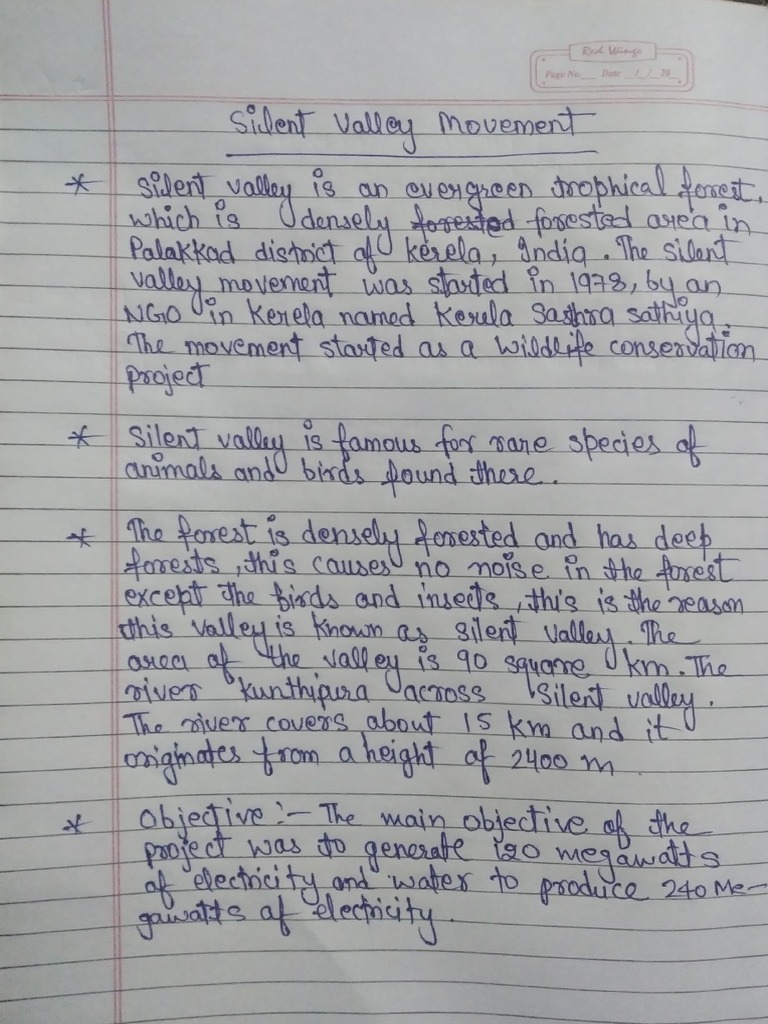 Red Wings
Page No.___ Date __/__/20__
Silent Valley Movement
* Silent valley is an evergreen trophical forest,
which is densely forested forested area in
Palakkad district of Kerela, India. The silent
valley movement was started in 1978, by an
NGO in Kerela named Kerela Sasthra sathiya.
The movement started as a wildlife conservation
project
* Silent valley is famous for rare species of
animals and birds found there.
* The forest is densely forested and has deep
forests, this causes no noise in the forest
except the birds and insects, this is the reason
this valley is known as silent valley. The
area of the valley is 90 square km. The
river Kunthipura across Silent valley.
The river covers about 15 km and it
originates from a height of 2400 m
* Objective :- The main objective of the
project was to generate 120 megawatts
of electricity and water to produce 240 Me-
gawatts of electricity.